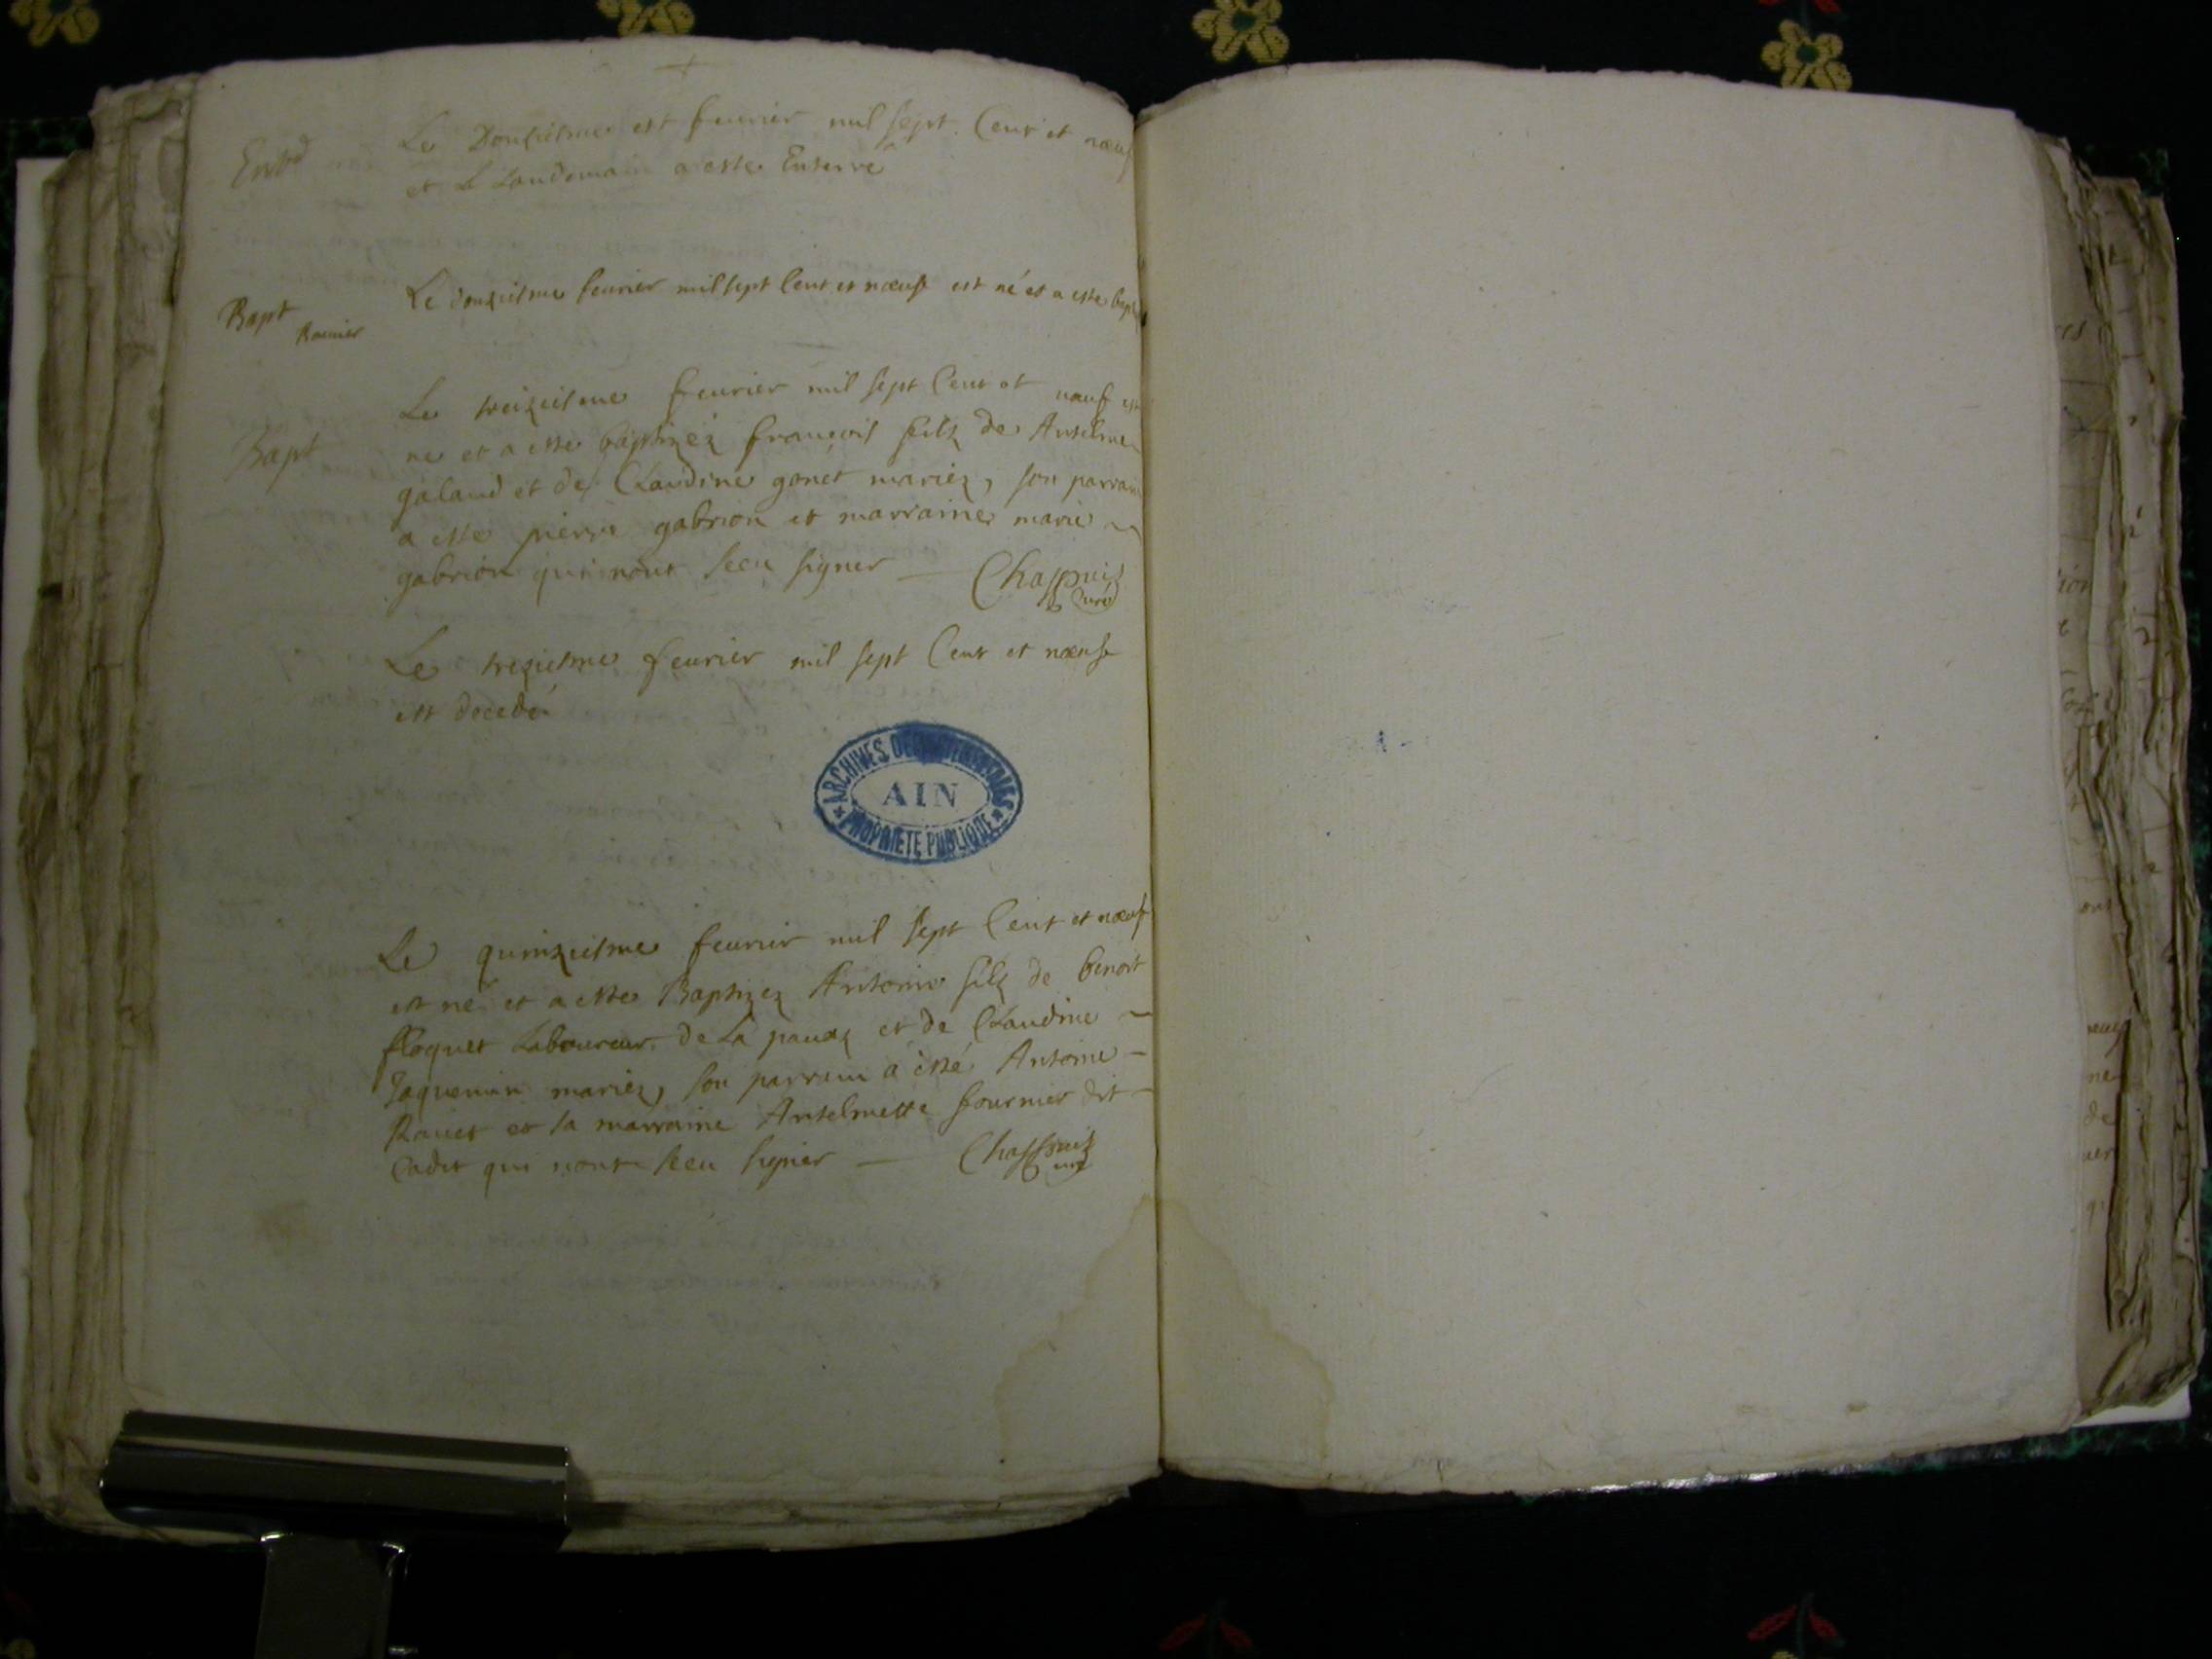 Le Douziesme est feurier mil sept Cent et nœuf
et Le Landemain a este Enterré
Bapt
Le douziesme feurier mil sept Cent et nœuf est né et a este bapt
Bapt
Le treiziesme feurier mil sept Cent et nœuf est
ne et a este baptizéz françois filz de Anselme
galand et de Claudine gonet mariez, son parrain
a este pierre gabrion et marraine marie
gabrion qui nont sceu signer Chappuis
Curé
Le treziesme feurier mil sept Cent et nœuf
est decedé
ARCHIVES DEPARTEMENTALES
AIN
PROPRIETE PUBLIQUE
Le quinziesme feurier mil sept Cent et nœuf
est né et a este Baptizez Antoine filz de benoit
floquet Laboureur de La et de Claudine
Jaquemin mariez, son parrain a esté Antoine
Rauier et la marraine Anselmette fournier dit
Cadit qui nont sceu signer Chappuis
curé